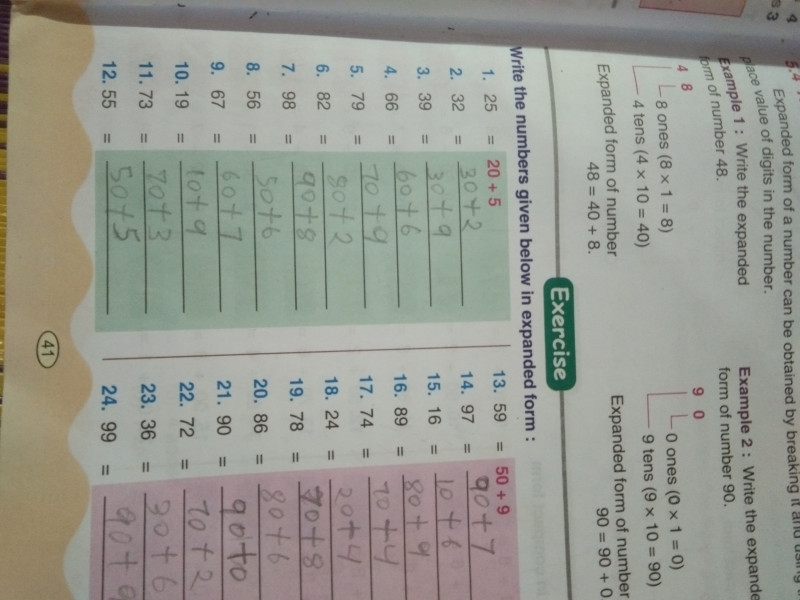 5.4
Expanded form of a number can be obtained by breaking it and using
place value of digits in the number.
Example 1 : Write the expanded
form of number 48.
4 8
8 ones (8 × 1 = 8)
4 tens (4 × 10 = 40)
Expanded form of number
48 = 40 + 8.
Example 2 : Write the expande
form of number 90.
9 0
0 ones (0 × 1 = 0)
9 tens (9 × 10 = 90)
Expanded form of number
90 = 90 + 0
Exercise
Write the numbers given below in expanded form :
1. 25 = 20 + 5
2. 32 = 30+2
3. 39 = 30+9
4. 66 = 60+6
5. 79 = 70+9
6. 82 = 80+2
7. 98 = 90+8
8. 56 = 50+6
9. 67 = 60+7
10. 19 = 10+9
11. 73 = 70+3
12. 55 = 50+5
13. 59 = 50 + 9
14. 97 = 90+7
15. 16 = 10+6
16. 89 = 80+9
17. 74 = 70+4
18. 24 = 20+4
19. 78 = 70+8
20. 86 = 80+6
21. 90 = 90+0
22. 72 = 70+2
23. 36 = 30+6
24. 99 = 90+9
41